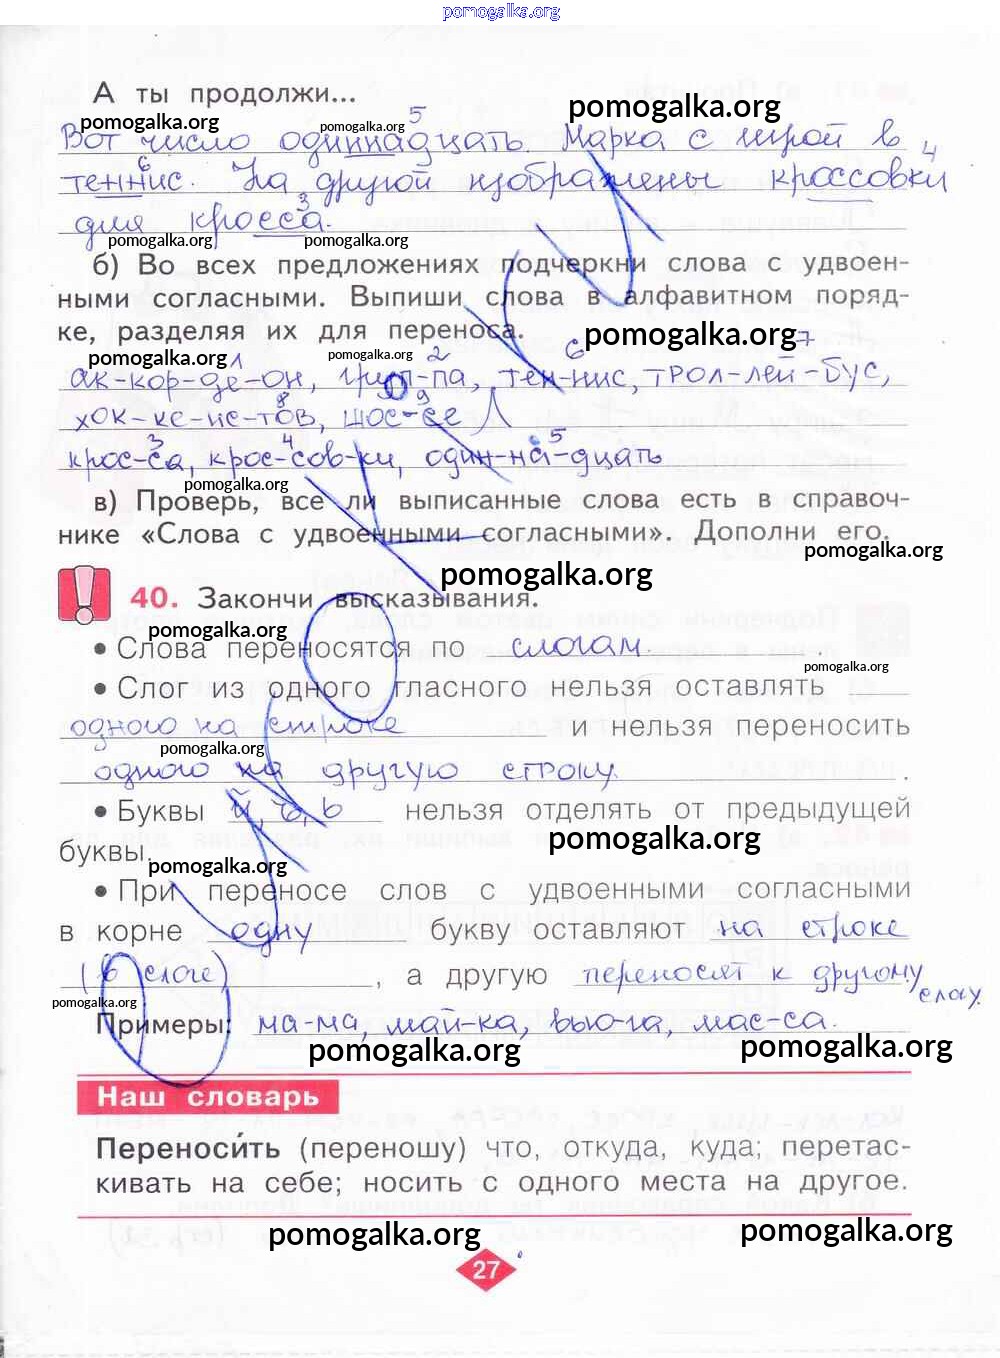 pomogalka.org
А ты продолжи...
pomogalka.org
pomogalka.org pomogalka.org 5
Вот число одиннадцать. Марка с игрой в
6 4
теннис. На другой изображены кроссовки
3
для кросса.
pomogalka.org pomogalka.org
б) Во всех предложениях подчеркни слова с удвоен-
ными согласными. Выпиши слова в алфавитном поряд-
ке, разделяя их для переноса.
pomogalka.org 7
pomogalka.org 1 pomogalka.org 2 6
ак-кор-де-он, груп-па, тен-нис, трол-лей-бус,
8 9
хок-ке-ис-тов, шос-се
3 4 5
крос-са, крос-сов-ки, один-на-дцать
pomogalka.org
в) Проверь, все ли выписанные слова есть в справоч-
нике «Слова с удвоенными согласными». Дополни его.
pomogalka.org
pomogalka.org
40. Закончи высказывания.
pomogalka.org
• Слова переносятся по слогам.
pomogalka.org
• Слог из одного гласного нельзя оставлять
одного на строке и нельзя переносить
pomogalka.org
одного на другую строку.
• Буквы й, ъ, ь нельзя отделять от предыдущей
pomogalka.org
буквы.
pomogalka.org
• При переносе слов с удвоенными согласными
в корне одну букву оставляют на строке
(в слоге), а другую переносят к другому
слогу.
pomogalka.org
Примеры: ма-ма, май-ка, вью-га, мас-са.
pomogalka.org pomogalka.org
Наш словарь
Переноси́ть (переношу) что, откуда, куда; перетас-
кивать на себе; носить с одного места на другое.
pomogalka.org pomogalka.org
27